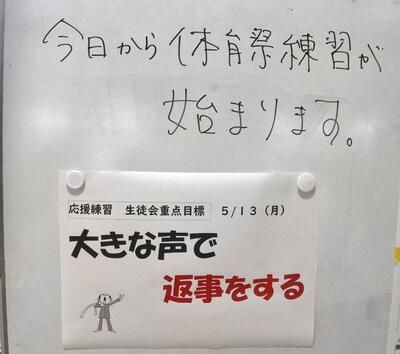 今日から体育祭練習が
始まります。
応援練習　生徒会重点目標　５/１３（月）
大きな声で
返事をする